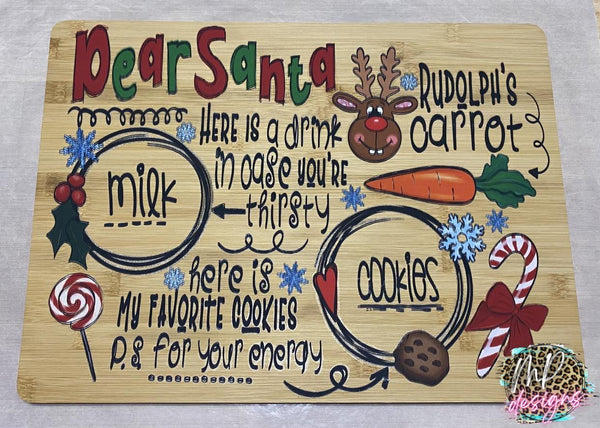 Dear Santa
HERE IS a drink
in case you're
thirsty
milk
RUDOLPH'S
carrot
here is
MY FAVORITE COOKIES
P.S. for your energy
COOKIES
MK
designs